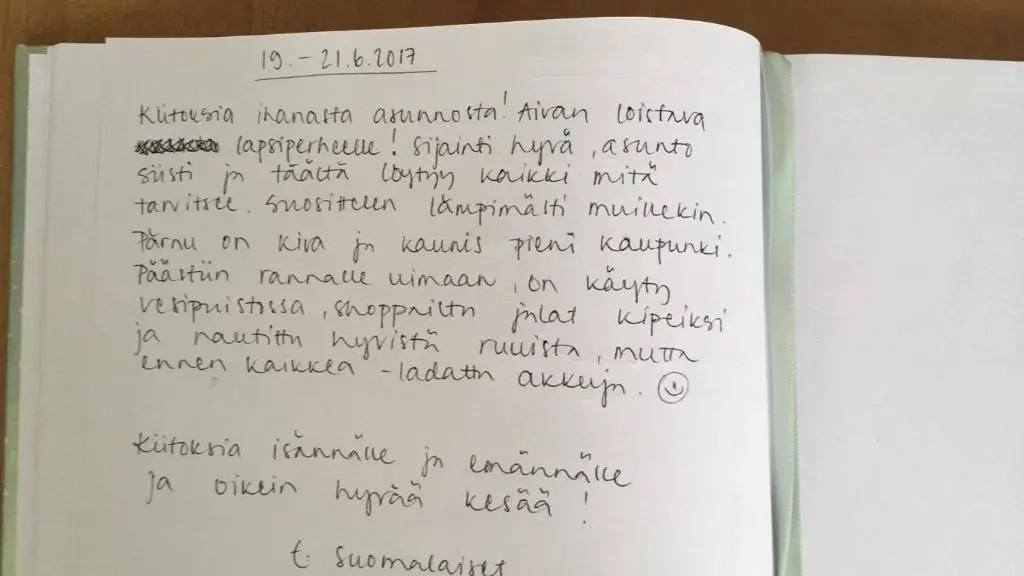 19. – 21.6.2017
Kiitoksia ihanasta asunnosta! Aivan loistava
lapsiperheelle! Sijainti hyvä, asunto
siisti ja täältä löytyy kaikki mitä
tarvitsee. Suosittelen lämpimästi muillekin.
Pärnu on kiva ja kaunis pieni kaupunki.
Päästiin rannalle uimaan, on käyty
vesipuistossa, shoppailtu jalat kipeiksi
ja nautittu hyvistä ruuista, mutta
ennen kaikkea - ladattu akkuja. ☺
Kiitoksia isännälle ja emännälle
ja oikein hyvää kesää!
t. Suomalaiset